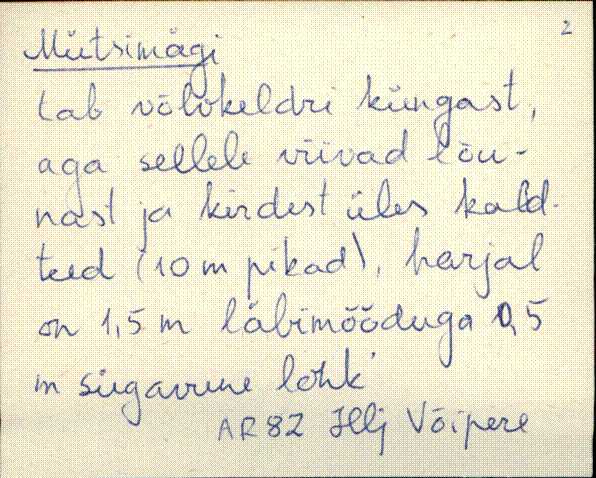 2
Mütsimägi
tab võlvkeldri küngast,
aga sellele viivad lõu-
nast ja kirdest üles kald-
teed (10 m pikad), harjal
on 1,5 m läbimõõduga 0,5
m sügavune lohk
AR 82 Illj Võipere